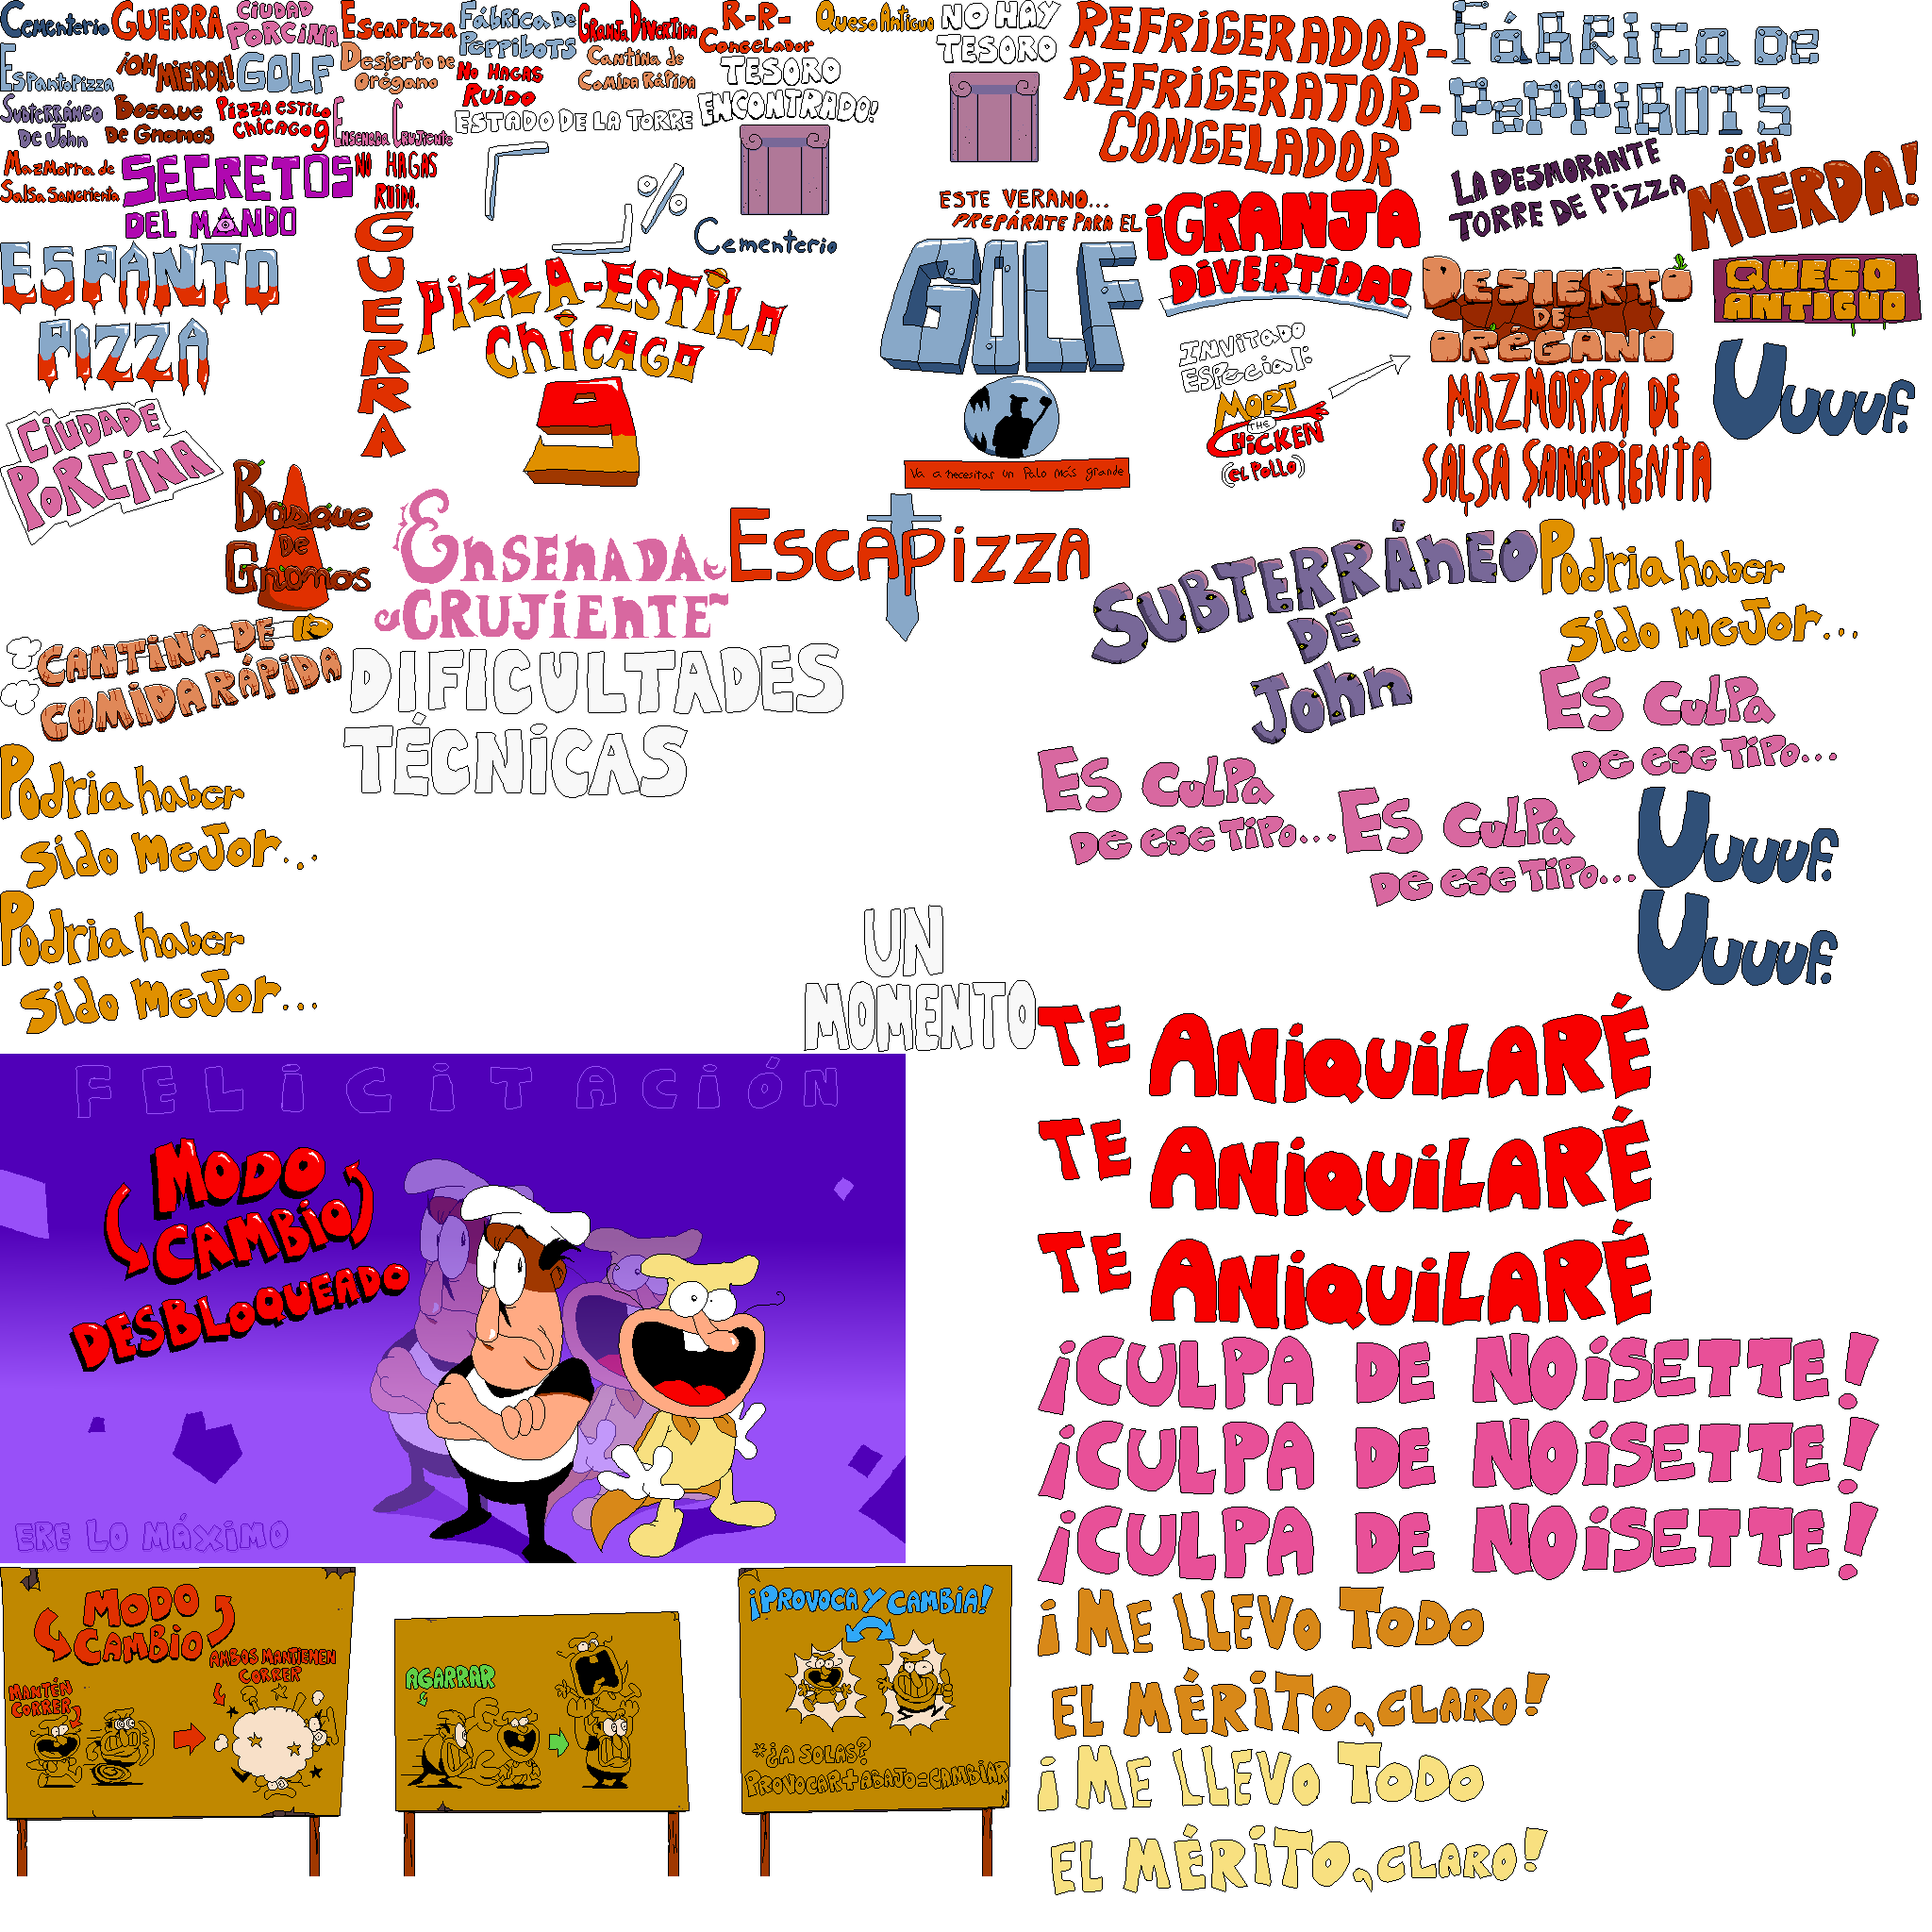 Cementerio
GUERRA
CIUDAD
PORCINA
Escapizza
Fábrica De
PeppiBOTS
GRANJA DIVERTIDA
R-R-
CONGELADOR
Queso Antiguo
NO HAY
TESORO
REFRIGERADOR-
REFRIGERATOR-
CONGELADOR
FÁBRICA DE
PEPPIBOTS
EspantoPizza
¡OH
MIERDA!
GOLF
Desierto de
Orégano
NO HAGAS
RUIDO
Cantina de
Comida Rápida
TESORO
ENCONTRADO!
SUBTERRÁNEO
DE John
Bosque
De Gnomos
Pizza estilo
Chicago 9
Ensenada Crujiente
ESTADO DE LA TORRE
MazMorra de
Salsa Sangrienta
SECRETOS
DEL MANDO
NO HAGAS
RUIDO.
%
Cementerio
ESTE VERANO...
PREPÁRATE PARA EL
GOLF
Va a necesitar un Palo más grande
¡GRANJA
DIVERTIDA!
LA DESMORANTE
TORRE DE PIZZA
¡OH
MIERDA!
ESPANTO
PIZZA
GUERRA
PIZZA-ESTILO
CHICAGO
9
INVITADO
ESPECIAL:
MORT
THE
CHICKEN
(EL POLLO)
DESIERTO
DE
ORÉGANO
QUESO
ANTIGUO
MAZMORRA DE
SALSA SANGRIENTA
Uuuuf.
CIUDADE
PORCINA
Bosque
De
Gnomos
ENSENADA
CRUJIENTE
ESCAPIZZA
SUBTERRÁNEO
DE
John
Podria haber
sido meJor...
CANTINA DE
COMIDA RÁPIDA
DIFICULTADES
TÉCNICAS
Es culpa
De ese Tipo...
Podria haber
sido meJor...
Es culpa
De ese Tipo...
Es culpa
De ese Tipo...
Uuuuf.
Podria haber
sido meJor...
UN
MOMENTO
Uuuuf.
TE ANIQUILARÉ
TE ANIQUILARÉ
TE ANIQUILARÉ
FELICITACIÓN
MODO
CAMBIO
DESBLOQUEADO
ERE LO MÁXIMO
¡CULPA DE NOISETTE!
¡CULPA DE NOISETTE!
¡CULPA DE NOISETTE!
MODO
CAMBIO
MANTÉN
CORRER
AMBOS MANTIENEN
CORRER
AGARRAR
¡PROVOCA Y CAMBIA!
*¿A SOLAS?
PROVOCAR+ABAJO=CAMBIAR
¡ME LLEVO TODO
EL MÉRITO, CLARO!
¡ME LLEVO TODO
EL MÉRITO, CLARO!